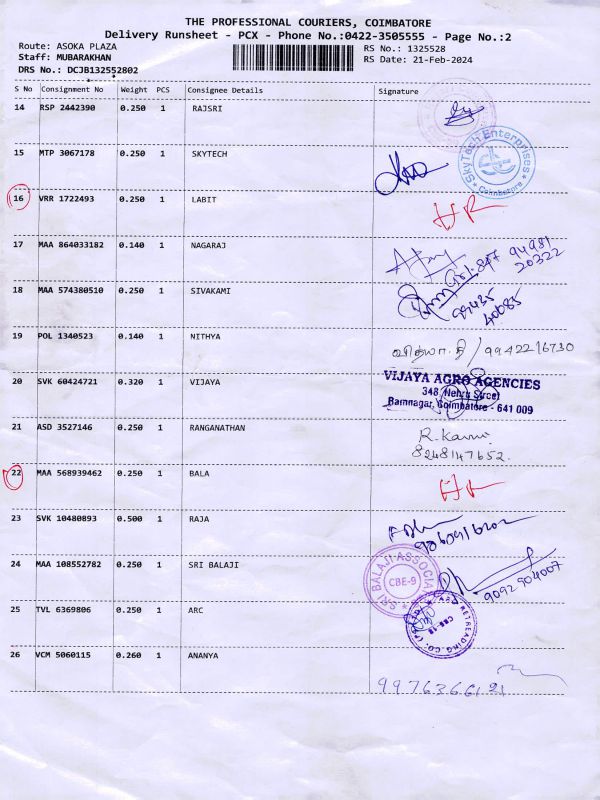 THE PROFESSIONAL COURIERS, COIMBATORE
Delivery Runsheet - PCX - Phone No.:0422-3505555 - Page No.:2
Route: ASOKA PLAZA
RS No.: 1325528
Staff: MUBARAKHAN
RS Date: 21-Feb-2024
DRS No.: DCJB132552802
S No Consignment No Weight PCS Consignee Details Signature
14 RSP 2442390 0.250 1 RAJSRI
15 MTP 3067178 0.250 1 SKYTECH
SkyTech Enterprises
Coimbatore
16 VRR 1722493 0.250 1 LABIT
17 MAA 864033182 0.140 1 NAGARAJ
94981
20322
18 MAA 574380510 0.250 1 SIVAKAMI
99435
40085
19 POL 1340523 0.140 1 NITHYA
வித்யா.தி / 9942216730
20 SVK 60424721 0.320 1 VIJAYA
VIJAYA AGRO AGENCIES
348, Nehru Street
Ramnagar, Coimbatore - 641 009
21 ASD 3527146 0.250 1 RANGANATHAN
8248147652.
22 MAA 568939462 0.250 1 BALA
23 SVK 10480893 0.500 1 RAJA
24 MAA 108552782 0.250 1 SRI BALAJI
SRI BALAJI ASSOCIA
CBE-9
9092904007
25 TVL 6369806 0.250 1 ARC
RETREADING CO. (P)
26 VCM 5060115 0.260 1 ANANYA
9976366121